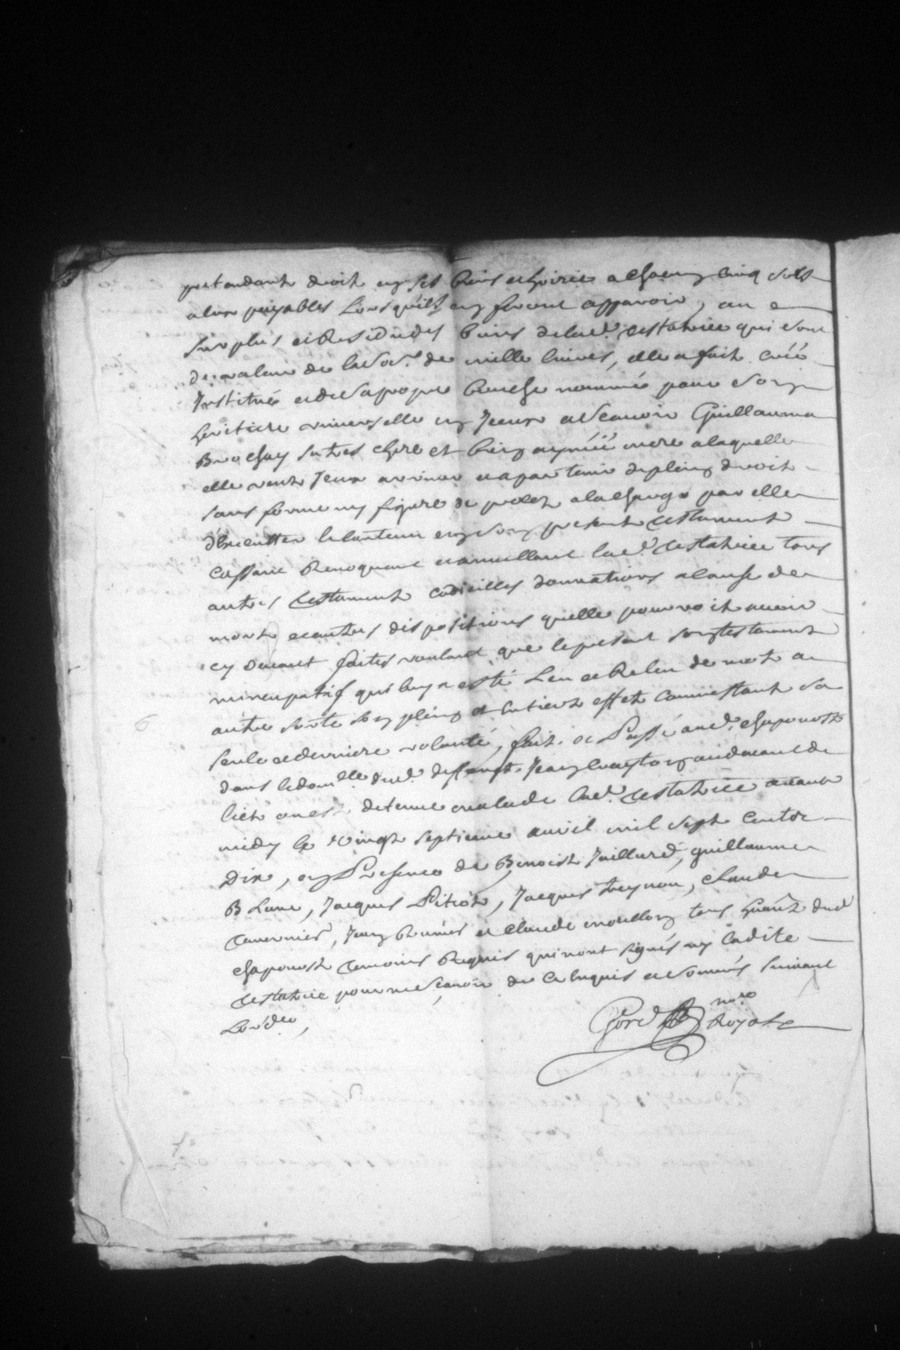 pretendants droit en ses biens et hoirie a chacun cinq sols
a eux payables lors quils en feront apparoir, au
surplus et Residu des biens de lad. testatrice qui sont
de valeur de la So.e de mille livres, elle a fait créé
Institué et de sa propre bouche nommée pour son
heritiere universelle en Jceux a Scauoir Guillauma
Brochay sa tres chere et bien aymée mere a laquelle
elle veut Jceux arriver et apartenir de plein droit
sans forme ny figure de procez a la charge par elle
d'executter le contenu en son present testament
Cassant Revoquant et annullant lad. testatrice tous
autres testaments codicilles donnations a cause de
mort et autres dispositions quelle pourroit avoir
cy devant faites voulant que le present son testament
nuncupatif qui luy a esté Leu et Releu de mot a
autre sorte son plein et entiers effet comme estant sa
seule et derniere volonté, fait et Passé aud. chaponost
dans le domille dud. deffunt Jean au devant du
lict ou est detenue malade lad. testatrice avant
midy le vingt septieme avril mil sept centz
Dix, en Presence de Benoist Jaillard, guillaume
B Lanc, Jacques Pitiot, Jacques treynon, claude
tavernier, Jean et claude moullon tous h͞ants dud
chaponost temoins Requis qui nont signés ny ladite
testatrice pour ne Scavoir de ce Enquis et sommés suivant
Lord.ce,
no.re
Royal